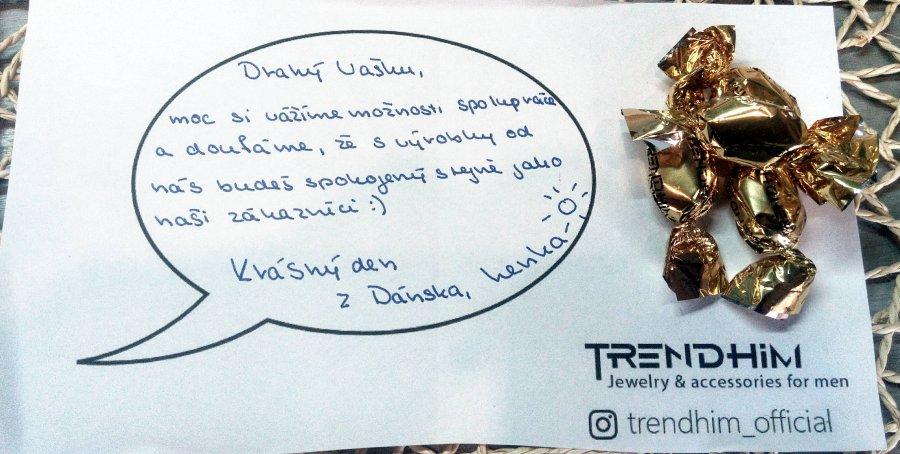 Drahý Vašku,
moc si vážíme možnosti spolupráce
a doufáme, že s výrobky od
nás budeš spokojený stejně jako
naši zákazníci :)
Krásný den
z Dánska, Lenka
TRENDHIM
TRENDHIM
Jewelry & accessories for men
trendhim_official